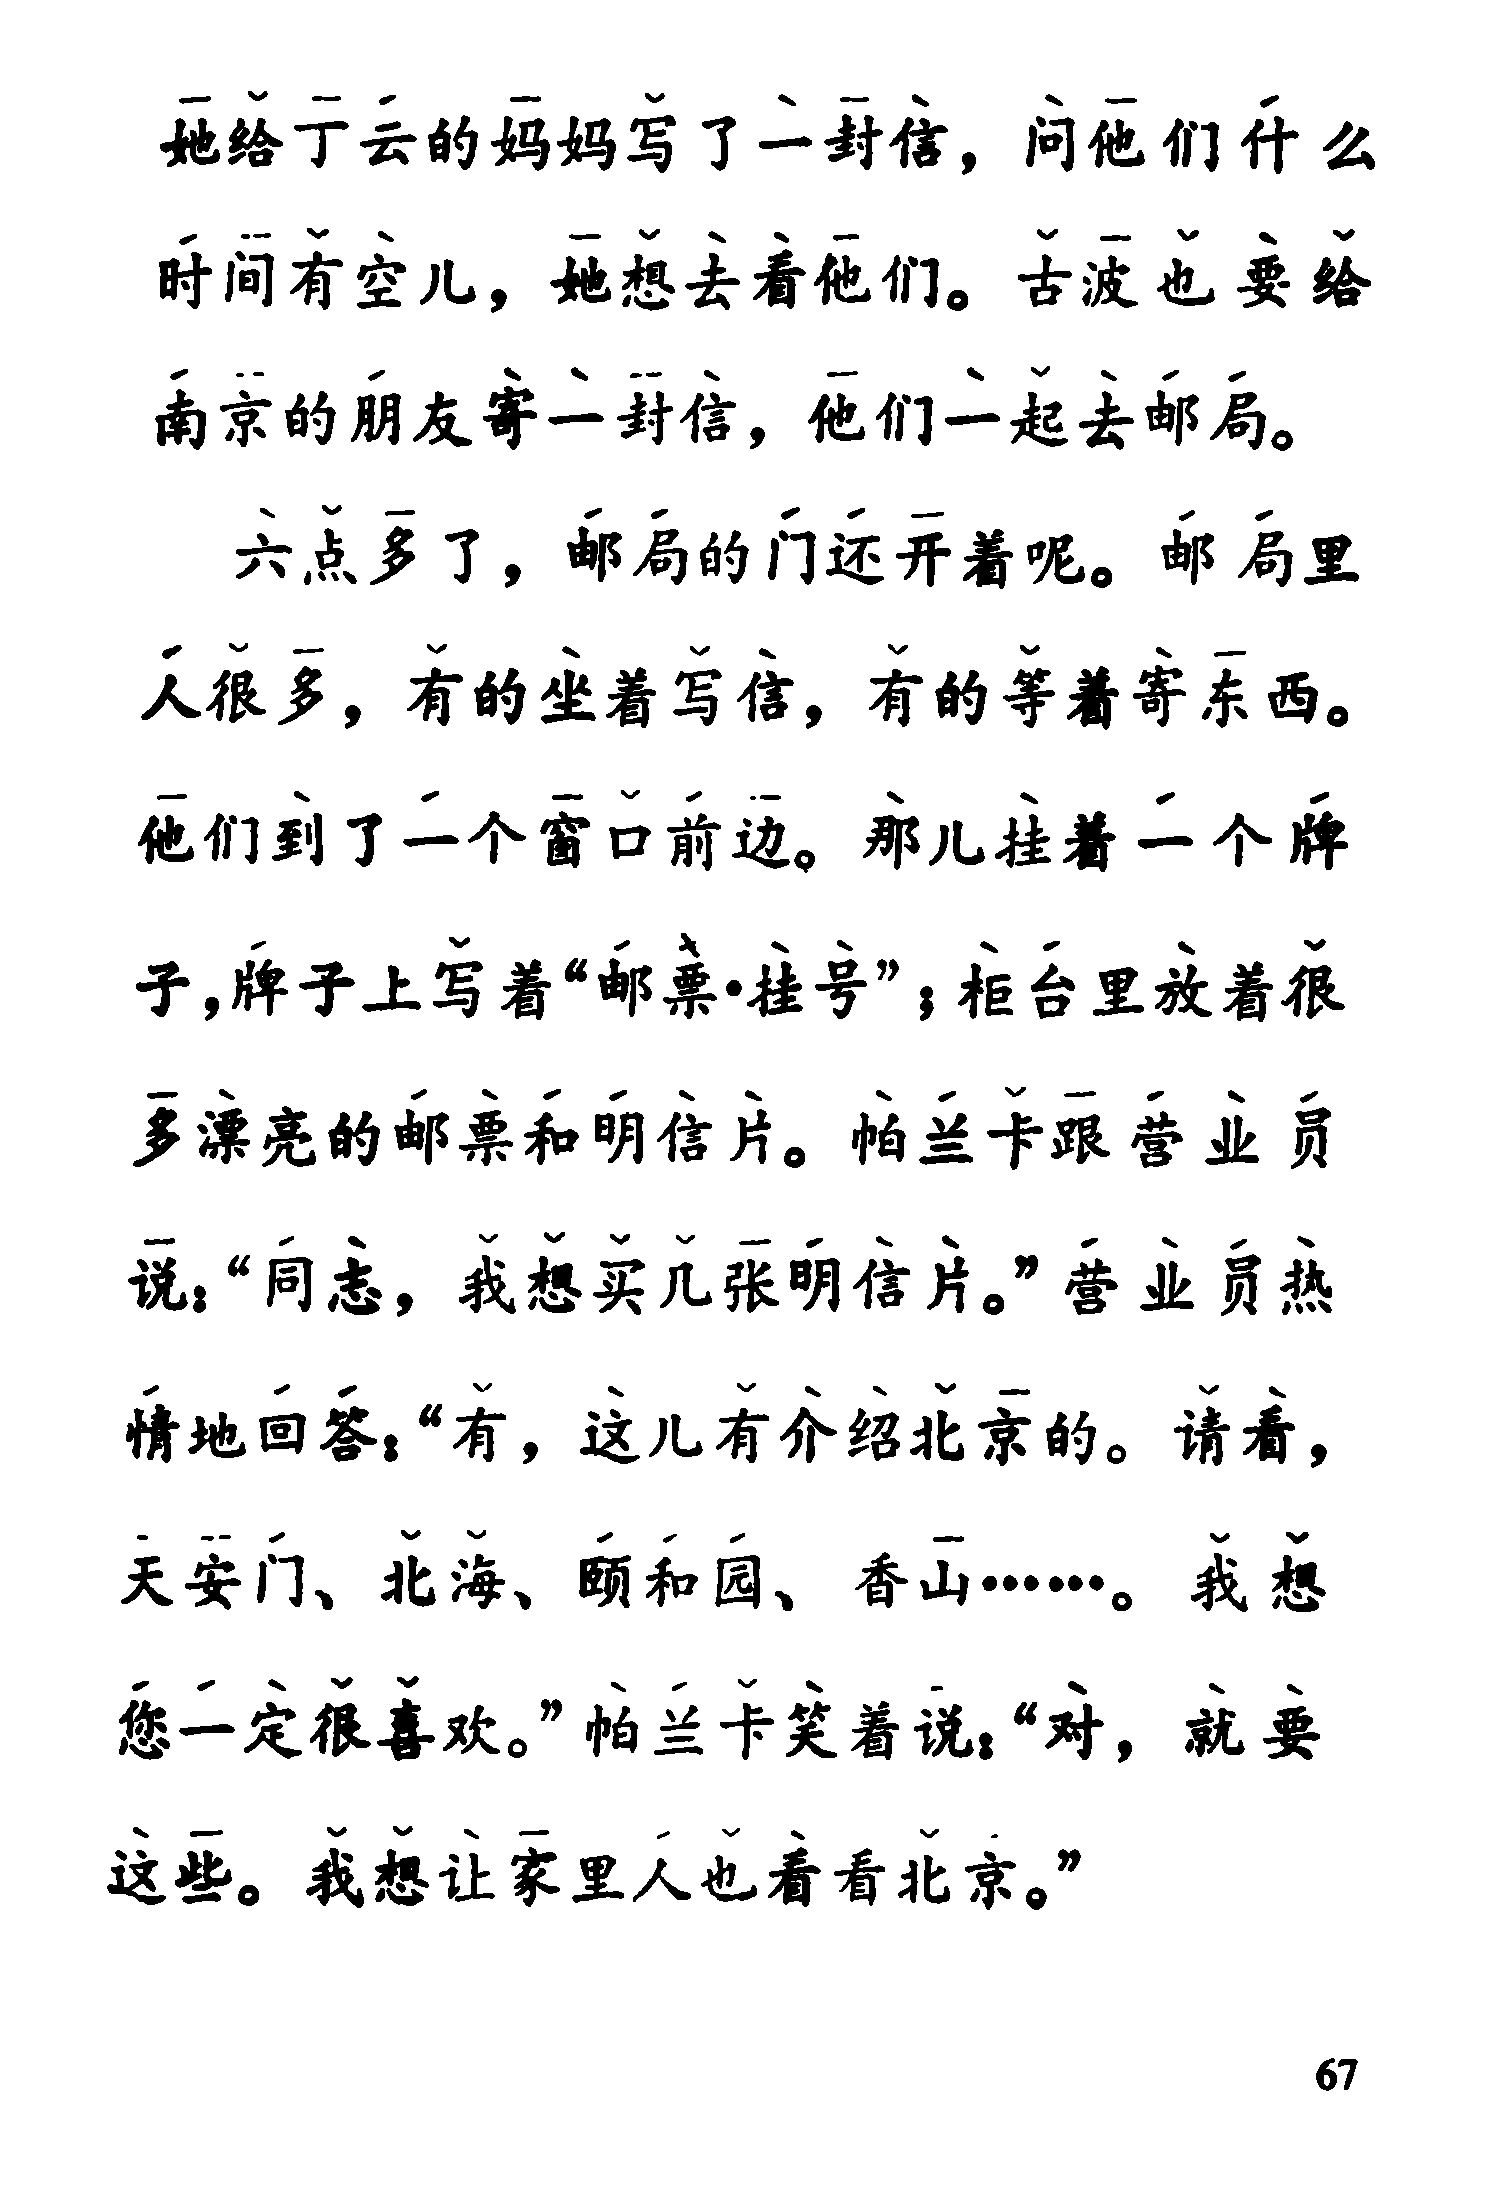 她给丁云的妈妈写了一封信，问他们什么
时间有空儿，她想去看他们。古波也要给
南京的朋友寄一封信，他们一起去邮局。
六点多了，邮局的门还开着呢。邮局里
人很多，有的坐着写信，有的等着寄东西。
他们到了一个窗口前边。那儿挂着一个牌
子，牌子上写着“邮票·挂号”；柜台里放着很
多漂亮的邮票和明信片。帕兰卡跟营业员
说：“同志，我想买几张明信片。”营业员热
情地回答：“有，这儿有介绍北京的。请看，
天安门、北海、颐和园、香山……。我想
您一定很喜欢。”帕兰卡笑着说：“对，就要
这些。我想让家里人也看看北京。”
67